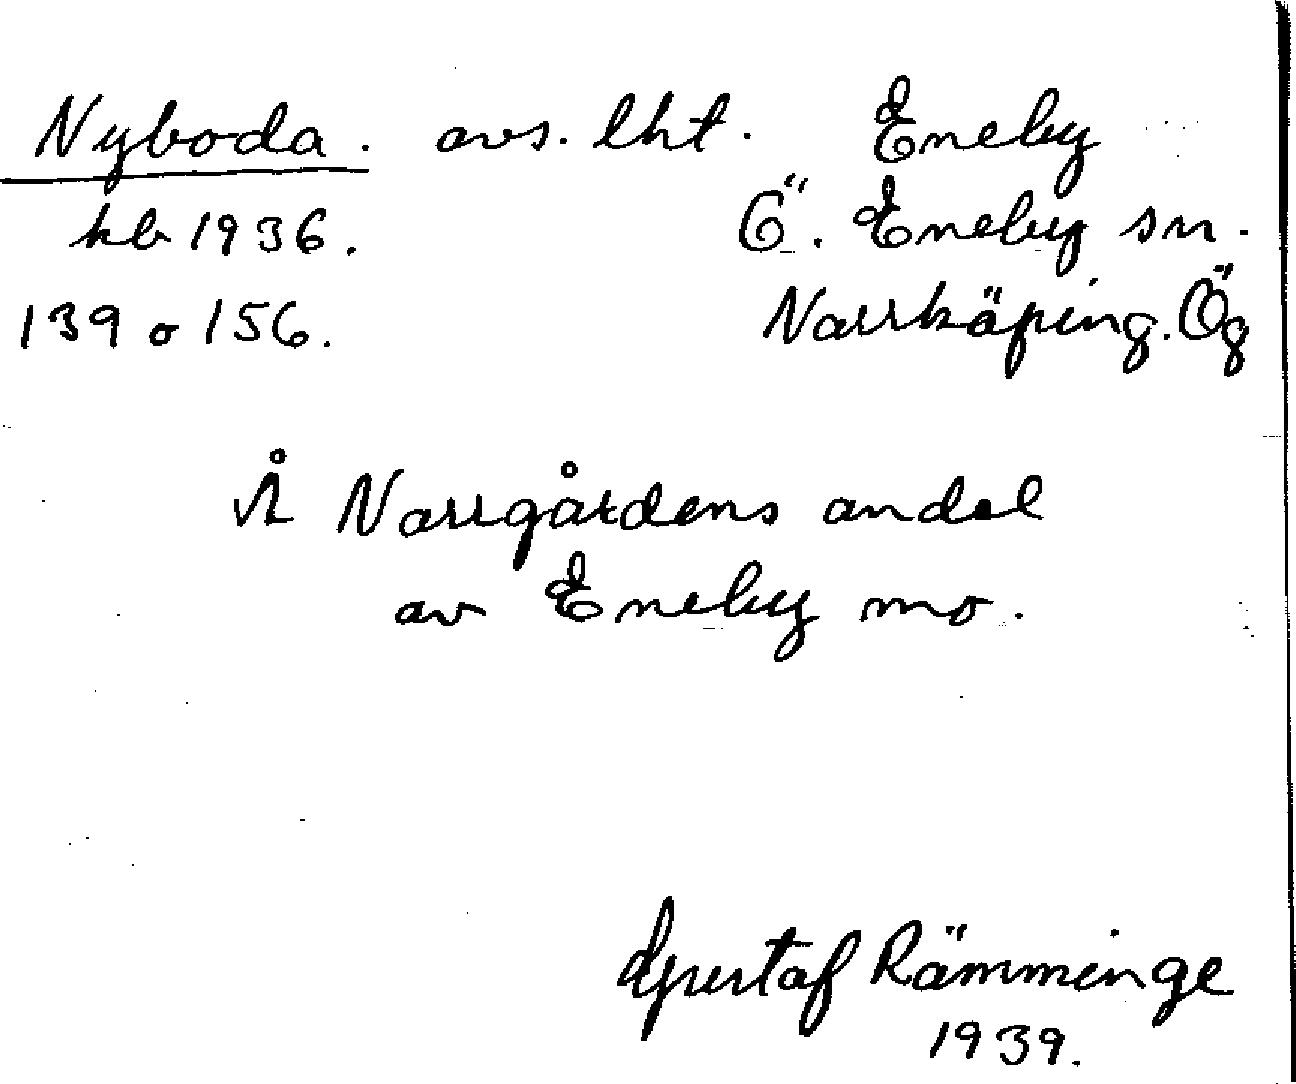 Nyboda. avs. lht. Eneby
kb 1936. Ö. Eneby sn.
139 o 156. Norrköping. Ög
Å Norrgårdens andel
av Eneby mo.
Gustaf Rämminge
1939.